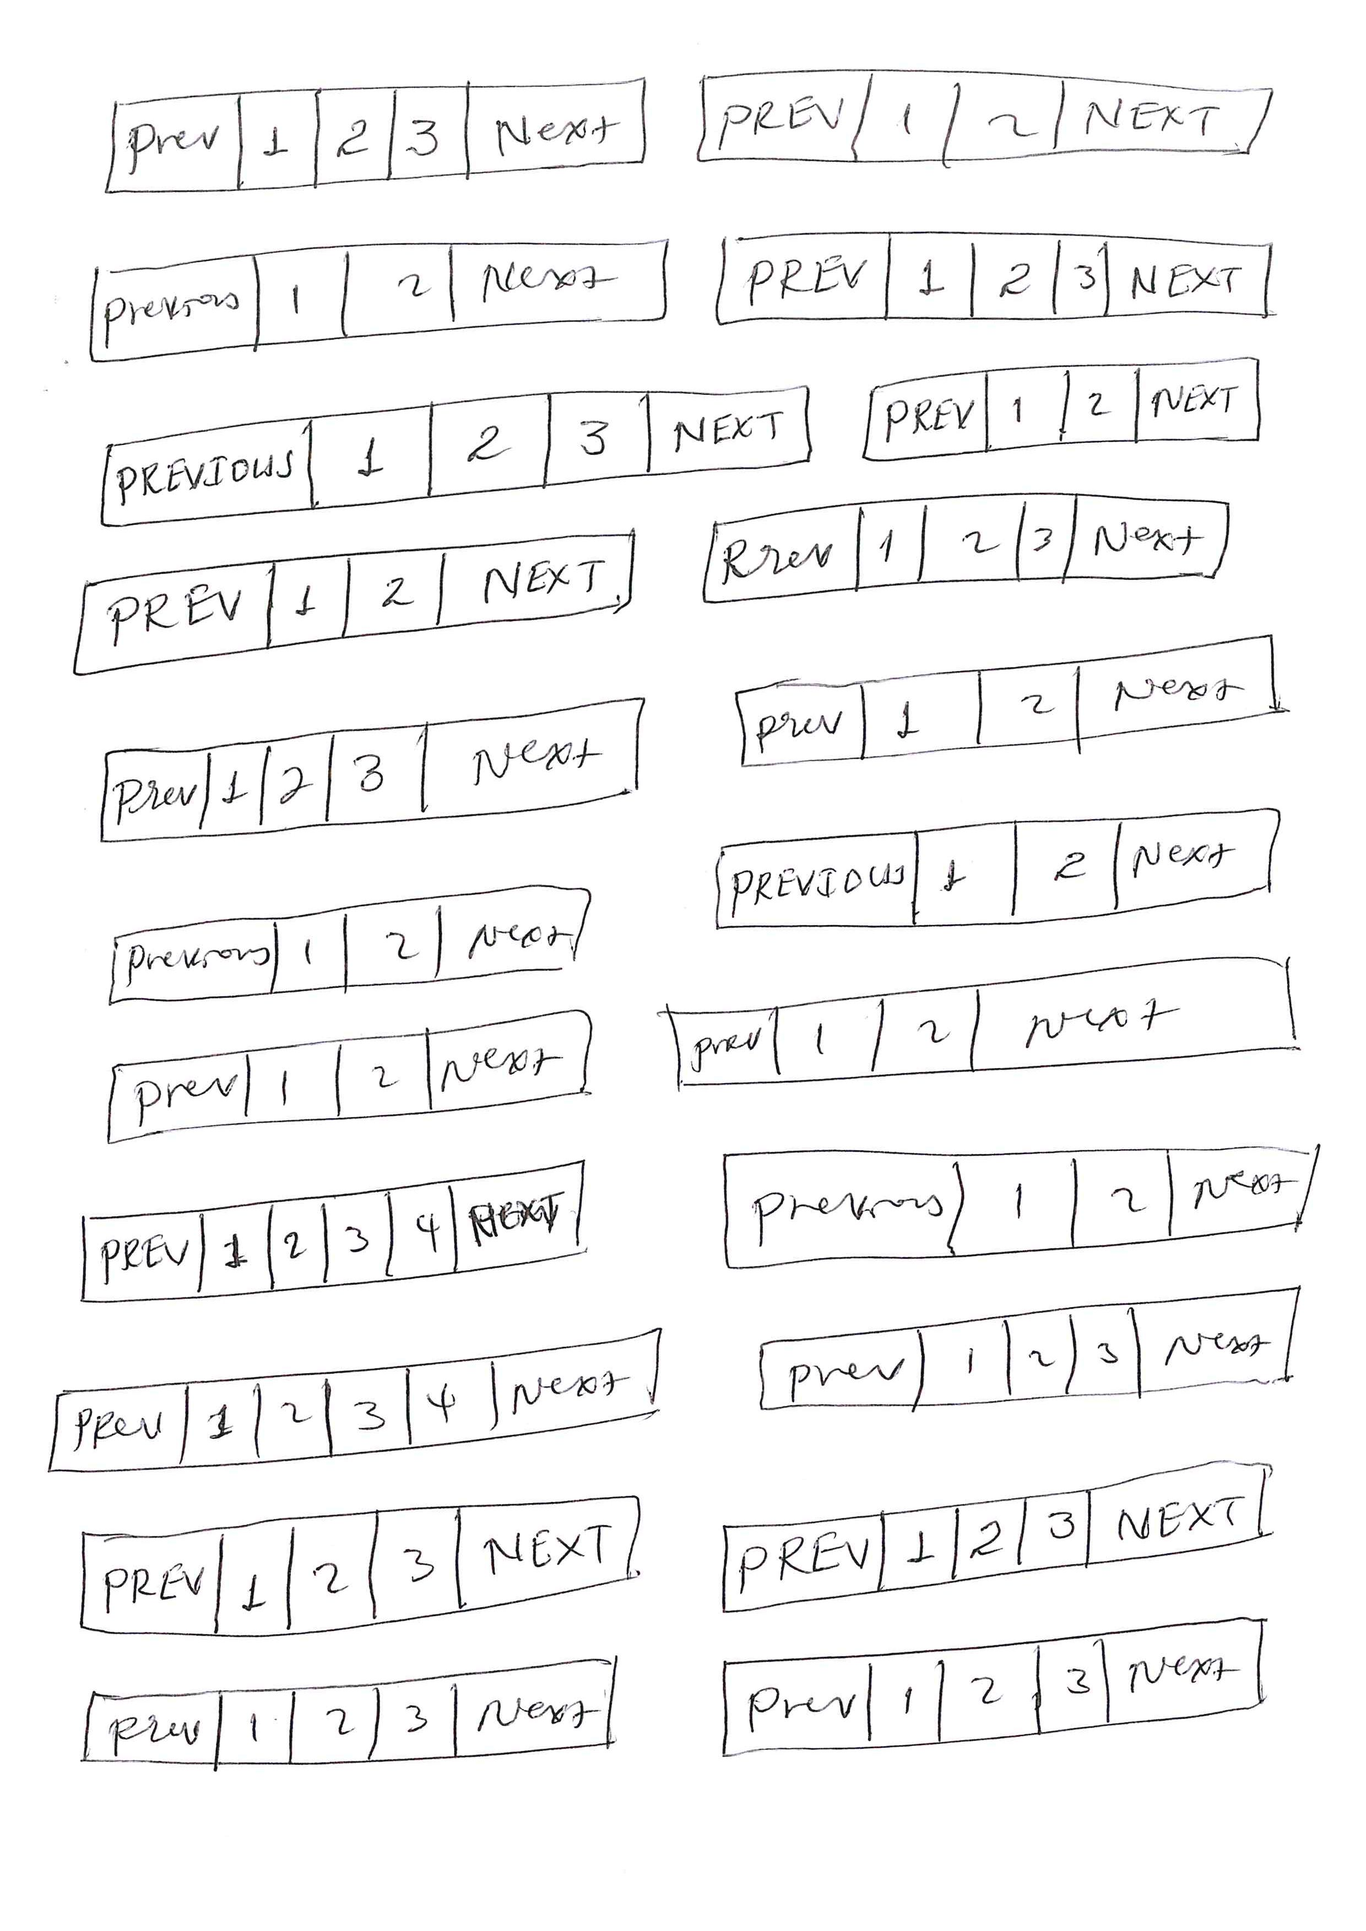 Prev 1 2 3 Next
PREV 1 2 NEXT
Previous 1 2 Next
PREV 1 2 3 NEXT
PREVIOUS 1 2 3 NEXT
PREV 1 2 NEXT
PREV 1 2 NEXT
Rrev 1 2 3 Next
Prev 1 2 3 Next
prev 1 2 Next
Previous 1 2 Next
PREVIOUS 1 2 Next
Prev 1 2 Next
prev 1 2 Next
PREV 1 2 3 4 NEXT
Previous 1 2 Next
Prev 1 2 3 4 Next
prev 1 2 3 Next
PREV 1 2 3 NEXT
PREV 1 2 3 NEXT
Prev 1 2 3 Next
Prev 1 2 3 Next